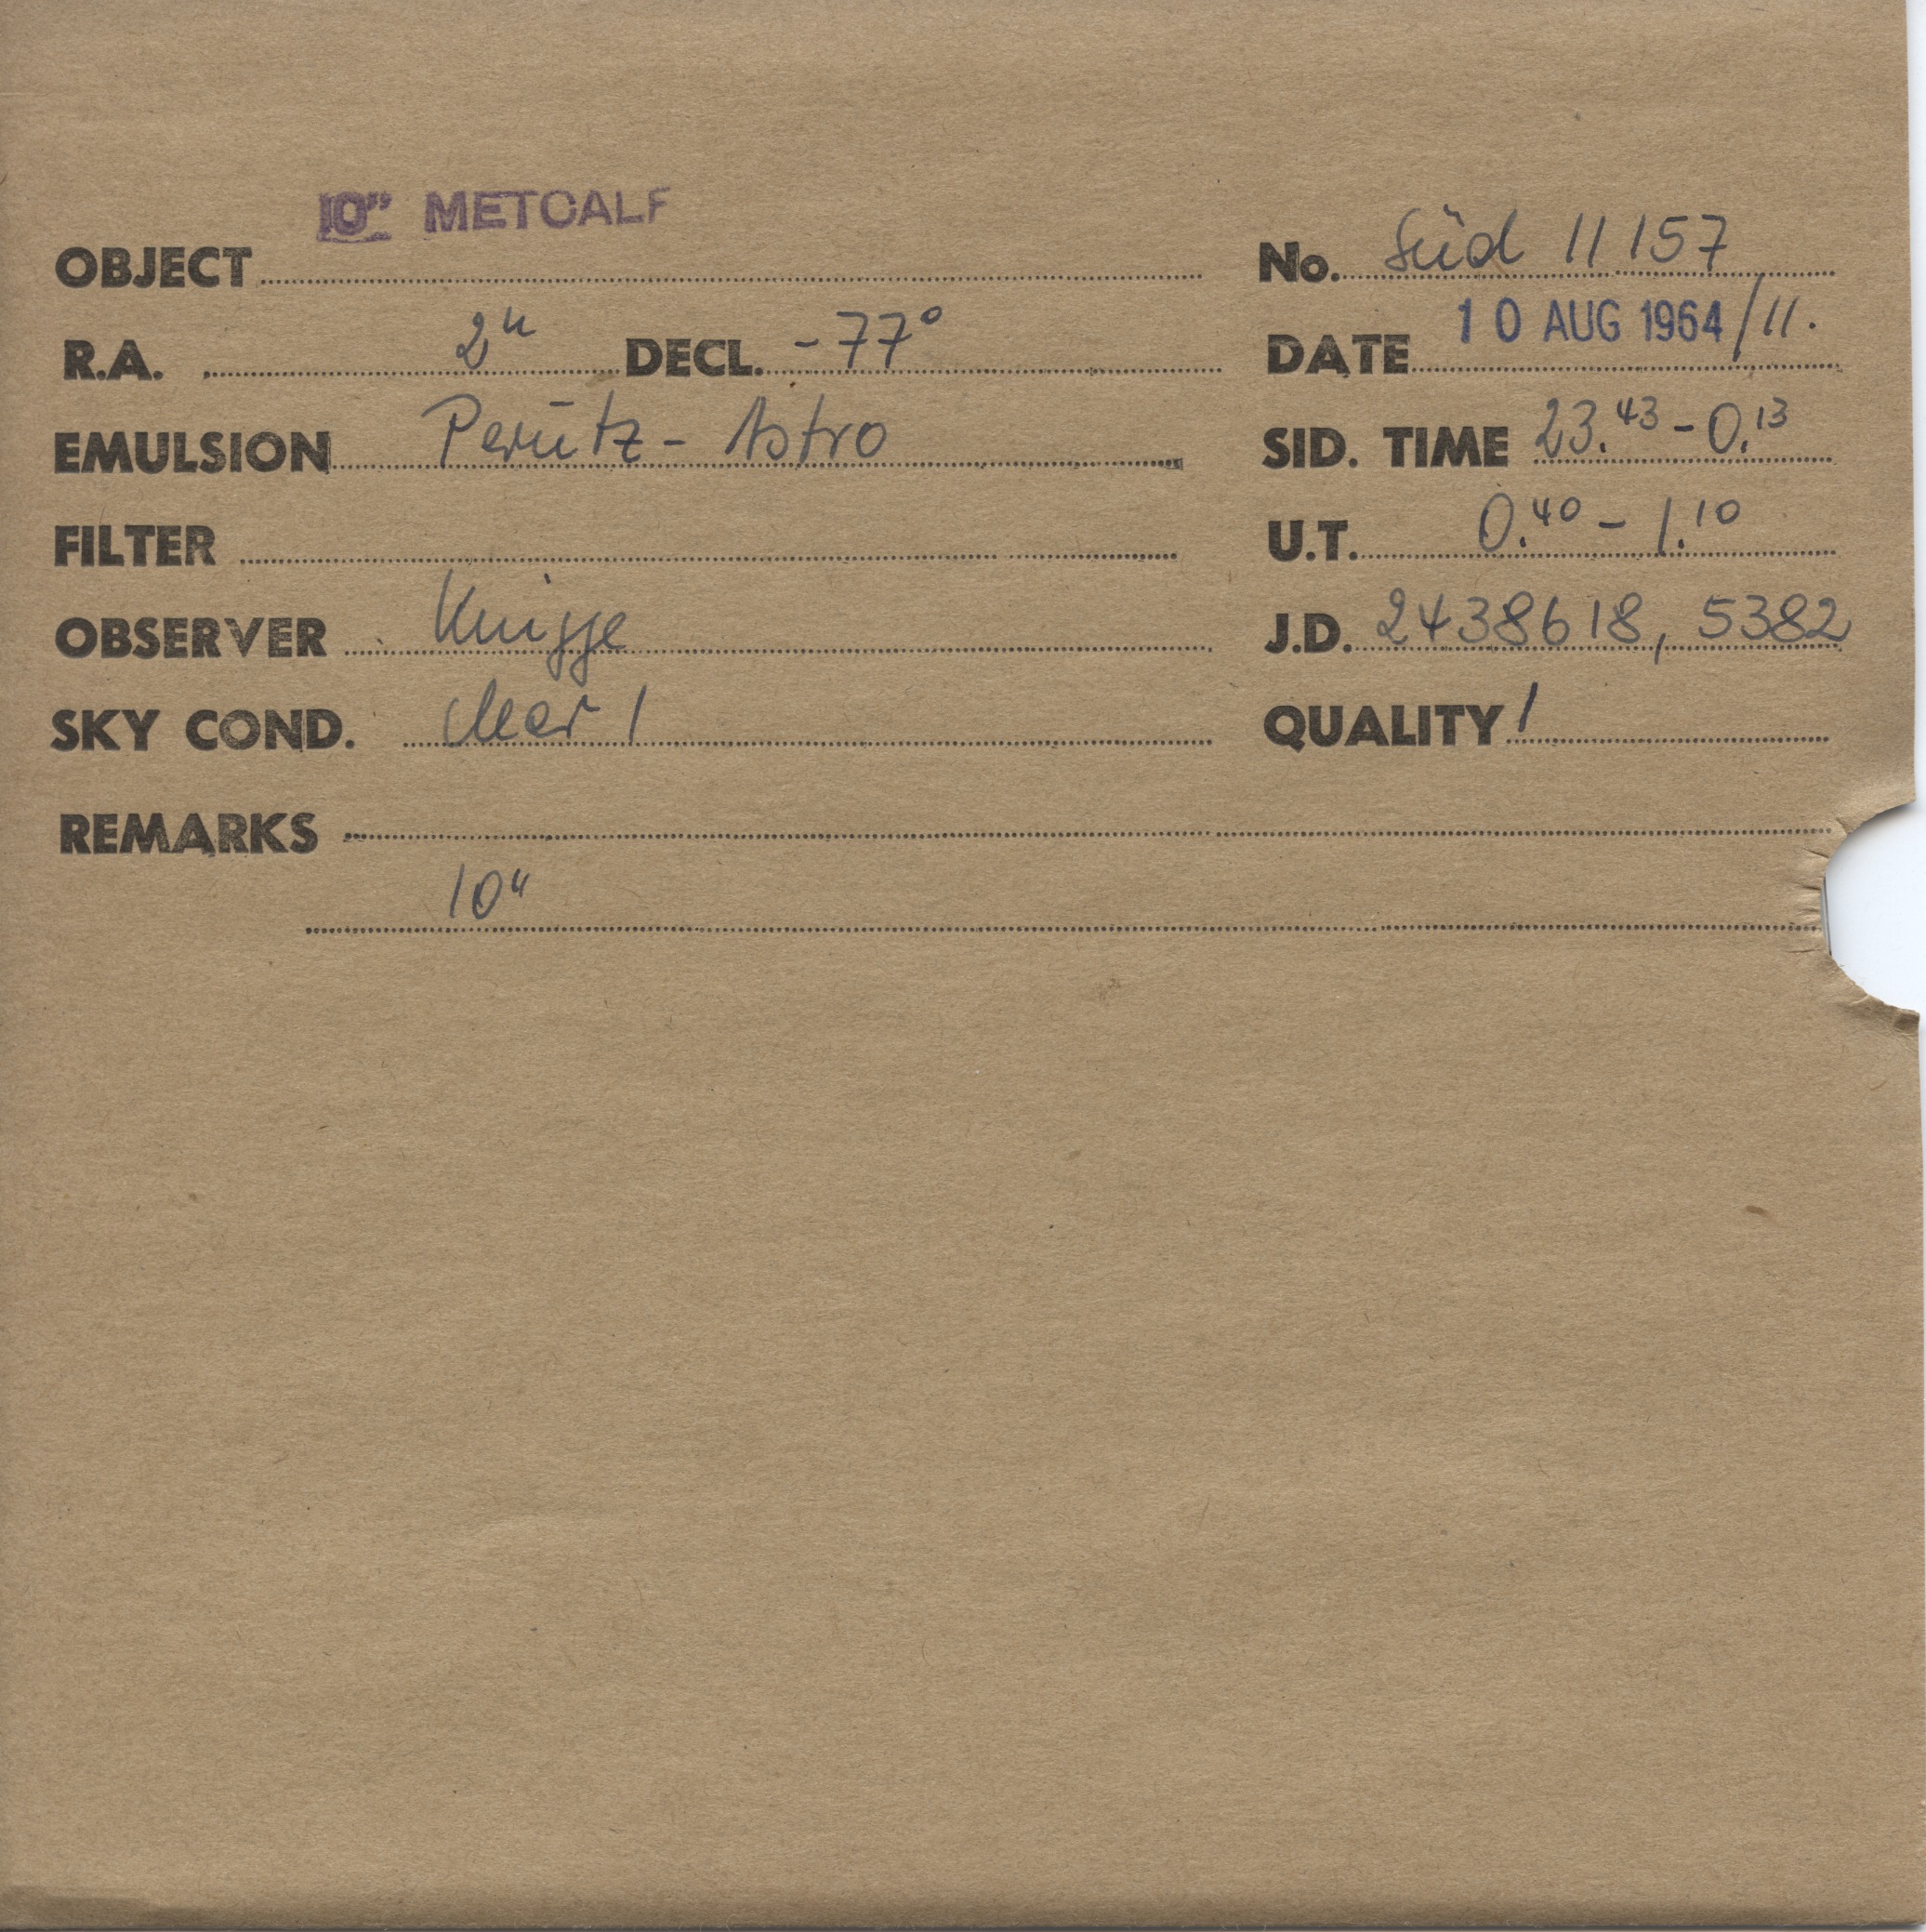 10" METCALF
OBJECT No. Süd 11157
R.A. 2h DECL. -77° DATE 10 AUG 1964/11.
EMULSION Perutz-Astro SID. TIME 23.43 - 0.13
FILTER U.T. 0.40 - 1.10
OBSERVER Knigge J.D. 2438618,5382
SKY COND. clear 1 QUALITY 1
REMARKS
10"